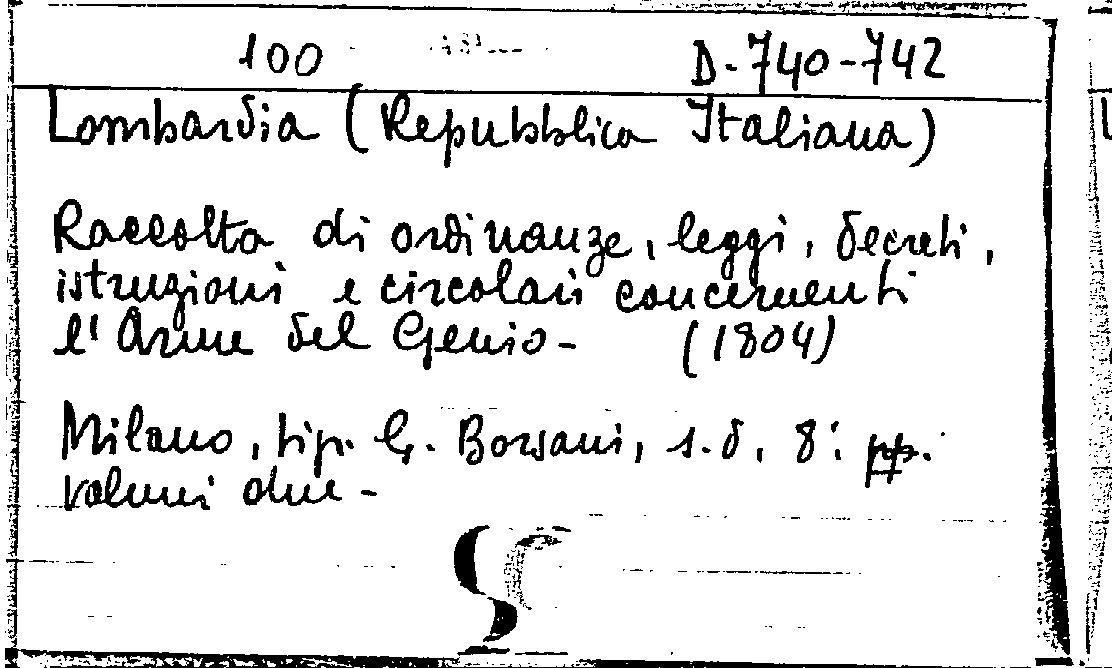 100 D. 740-742
Lombardia (Repubblica Italiana)
Raccolta di ordinanze, leggi, decreti,
istruzioni e circolari concernenti
l'Arme del Genio - (1804)
Milano, tip. G. Borsani, s.d. 8:
volumi due -